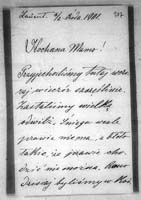 Kochana Mamo!
Przyjechaliśmy tutaj wczo-
raj wieczór szczęśliwie.
Zastaliśmy wielką
odwilż. Śniegu wcale
prawie niema, a błoto
takie, że prawie cho-
dzić nie można.
Dzisiaj byliśmy w